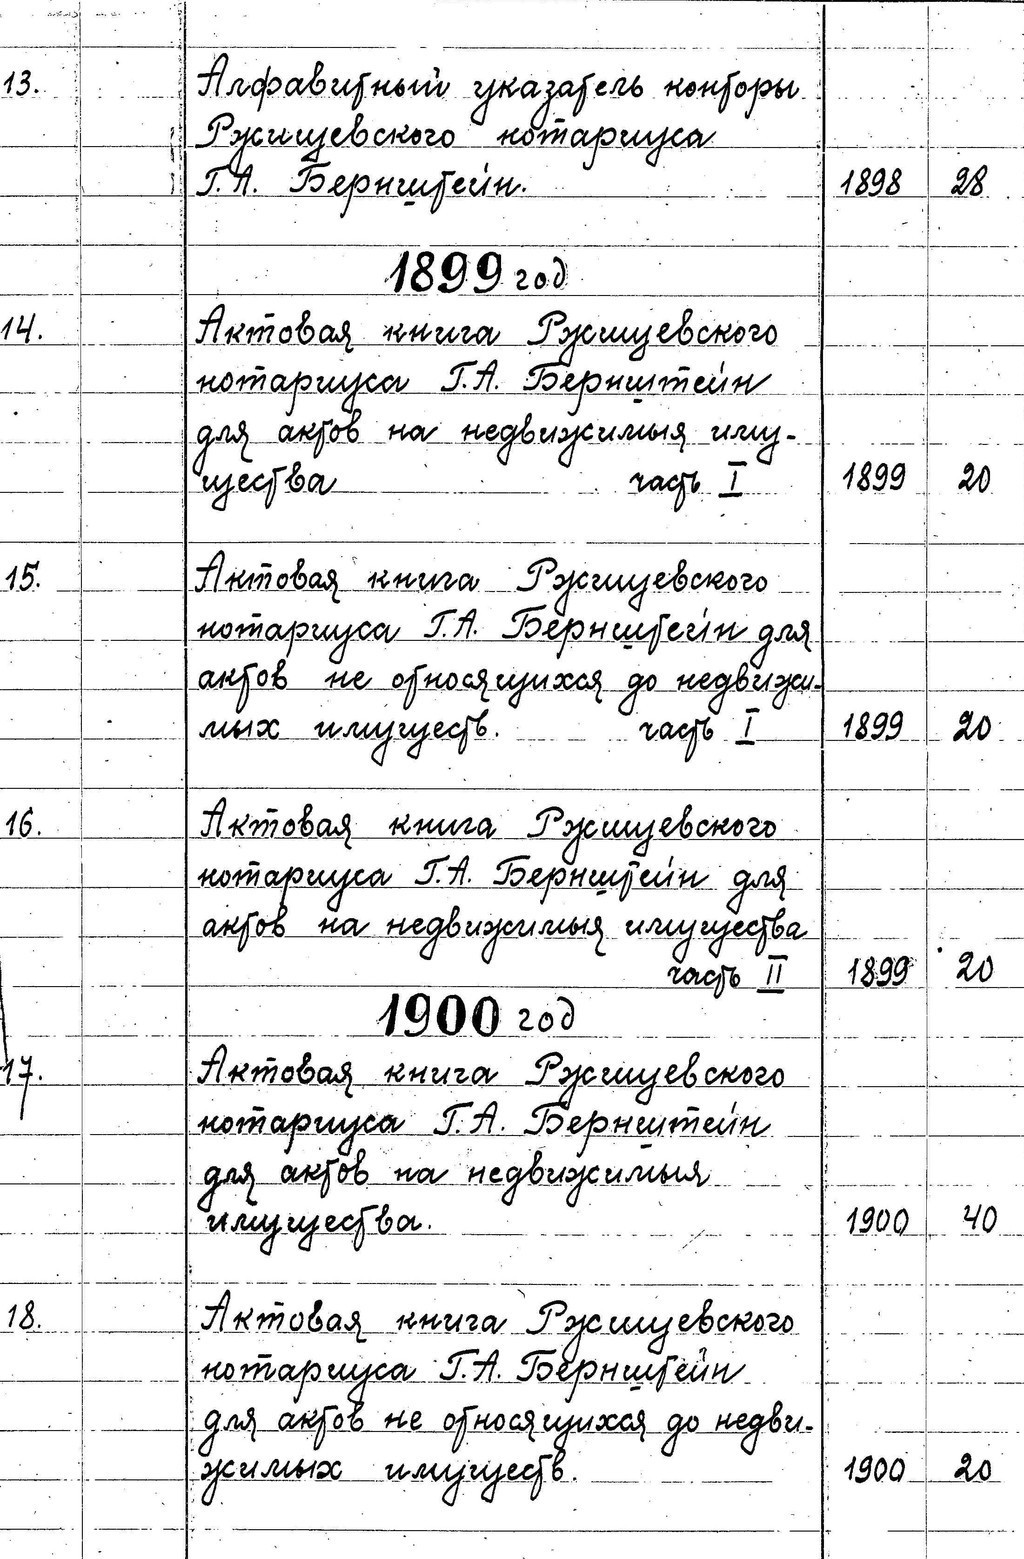 13. Алфавитный указатель конторы
Ржищевского нотариуса
Г.А. Бернштейн. 1898 28
1899 год
14. Актовая книга Ржищевского
нотариуса Г.А. Бернштейн
для актов на недвижимыя иму-
щества часть I 1899 20
15. Актовая книга Ржищевского
нотариуса Г.А. Бернштейн для
актов не относящихся до недвижи-
мых имуществ. часть I 1899 20
16. Актовая книга Ржищевского
нотариуса Г.А. Бернштейн для
актов на недвижимыя имущества
часть II 1899 20
1900 год
17. Актовая книга Ржищевского
нотариуса Г.А. Бернштейн
для актов на недвижимыя
имущества. 1900 40
18. Актовая книга Ржищевского
нотариуса Г.А. Бернштейн
для актов не относящихся до недви-
жимых имуществ. 1900 20